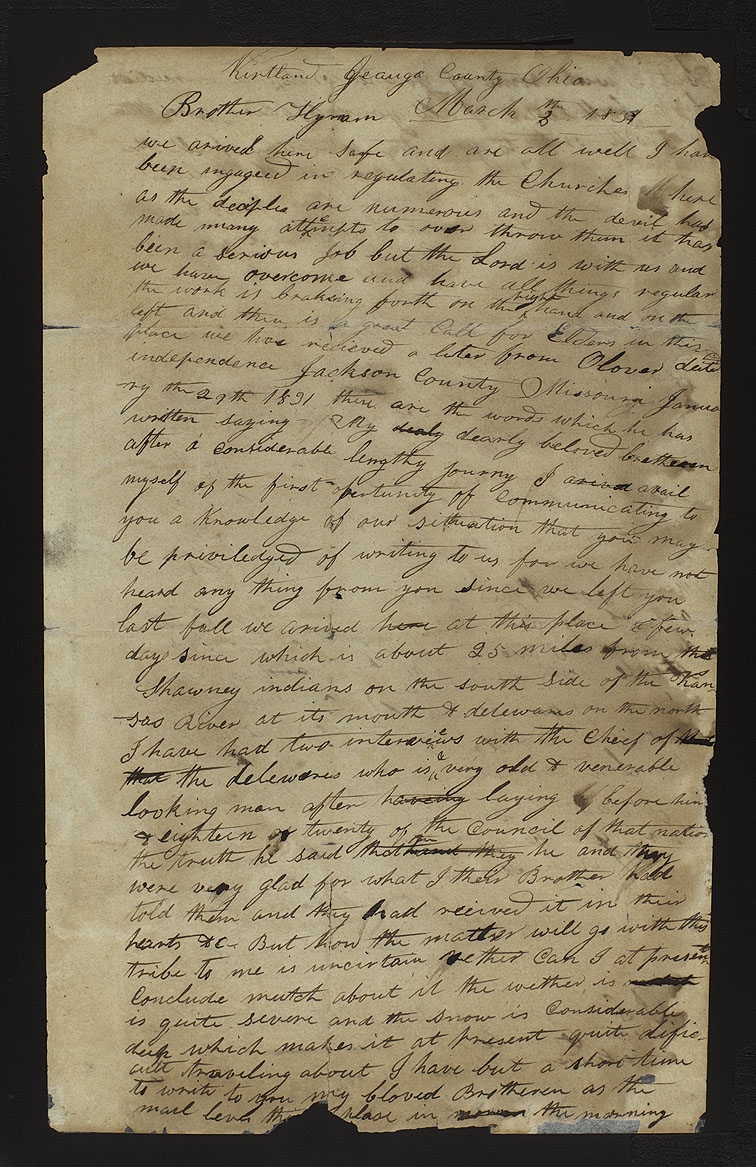 Kirtland Geauga County Ohio
Brother Hyram March 3th 1831
we arived here safe and are all well I hav
been ingaged in regulating the Churches here
as the deciples are numerous and the devil had
made many attempts to over throw them it has
been a serious job but the Lord is with us and
we have overcome and have all things regular
the work is brakeing forth on the right hand and on the
left and there is a great Call for Elders in this
place we have recieved a leter from Olover dated
independence Jackson County Missouri Janua
ry the 29th 1831 these are the words which he has
written saying My dealy dearly beloved bretheren
after a considerable lengthy journy I arived avail
myself of the first opertunity of communicating to
you a knowledge of our situation that you may
be priviledged of writing to us for we have not
heard any thing from you since we left you
last fall we arived here at this place a few
days since which is about 25 miles from the
Shawney indians on the south side of the Kan
sas River at its mouth & delewares on the north
I have had two interviews with the Chief of the
that the delewares who is a very old & venerable
looking man after haveing laying before him
& eighteen or twenty of the Council of that nation
the truth he said that he and they he and they
were very glad for what I their Brother had
told them and they had recived it in their
hearts &c- But how the matter will go with this
tribe to me is uncirtain nether Can I at presen
Conclude mutch about it the wether is
is quite severe and the snow is Considerable
deep which makes it at present quite dific
ult traveling about I have but a short time
to write to you my bloved Bretheren as the
mail leves this place in the morning